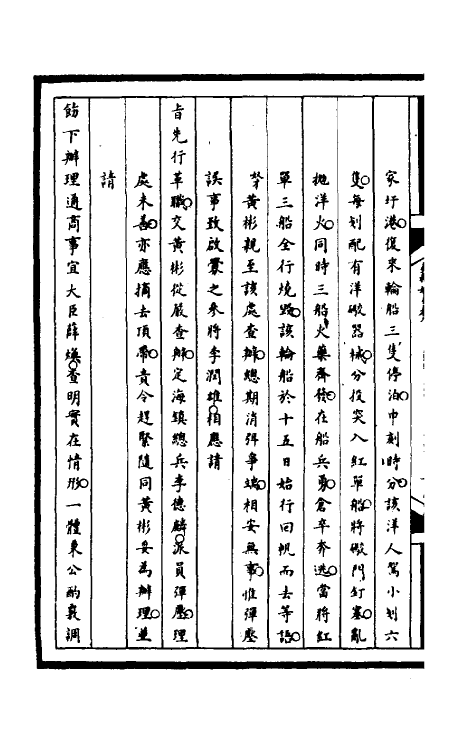 家圩港復來輪船三隻停泊申刻時分該洋人駕小划六
隻每划配有洋礮器械分投突入紅單船將礮門釘塞亂
拋洋火同時三船火藥齊發在船兵勇倉卒奔逃當將紅
單三船全行燒燬該輪船於十五日始行回帆而去等語
黃彬親至該處查辦總期消弭爭端相安無事惟彈壓
誤事致啟釁之參將李潤雄相應請
旨先行革職交黃彬從嚴查辦定海鎮總兵李德麟派員彈壓理
處未善亦應摘去頂帶責令趕緊隨同黃彬妥為辦理並
請
飭下辦理通商事宜大臣薛煥查明實在情形一體秉公酌裏調